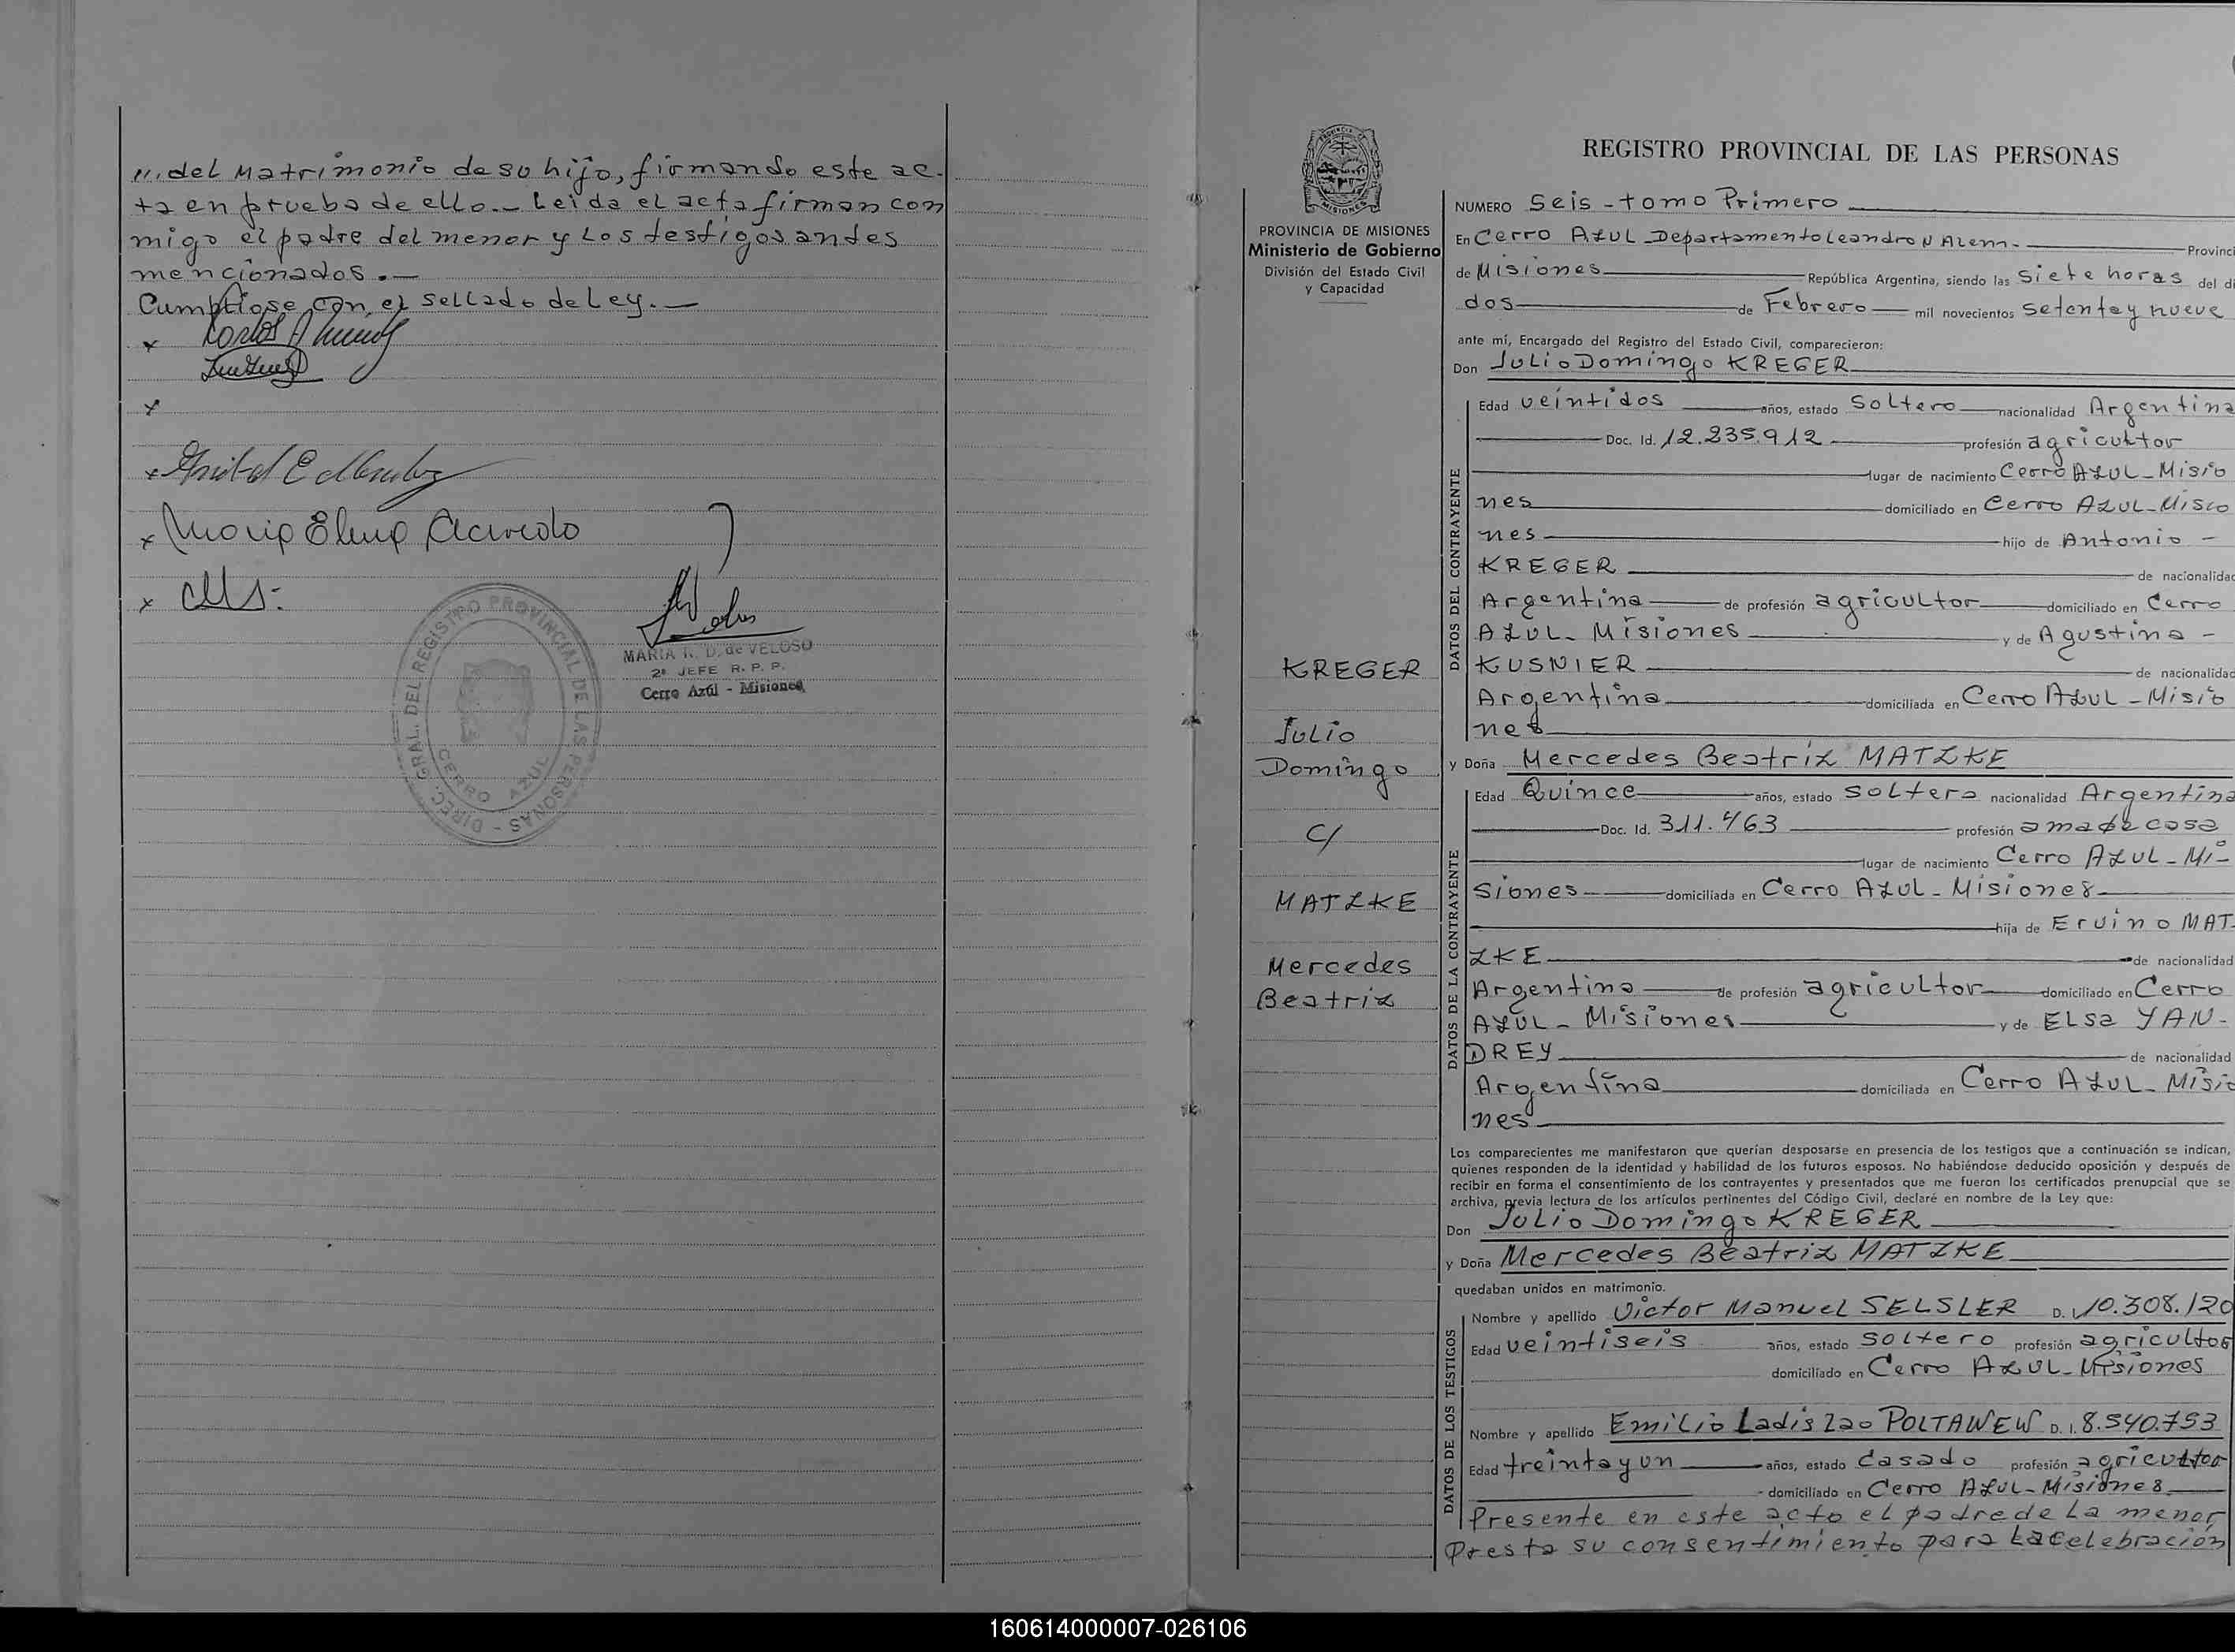 ///. del Matrimonio de su hijo, firmando este ac-
ta en prueba de ello._ Leida el acta firman con
migo el padre del menor y los testigos antes
mencionados._
Cumpliose con el sellado de Ley._
x
x
x
x Maria Elena Acevedo
x
DIREC. GRAL. DEL REGISTRO PROVINCIAL DE LAS PERSONAS -
CERRO AZUL
MARIA R. D. de VELOSO
2º JEFE R. P. P.
Cerro Azúl - Misiones
MISIONES
PROVINCIA DE MISIONES
Ministerio de Gobierno
División del Estado Civil
y Capacidad
KREGER
Julio
Domingo
C/
MATZKE
Mercedes
Beatriz
REGISTRO PROVINCIAL DE LAS PERSONAS
NUMERO Seis - tomo Primero
En Cerro AZUL_Departamento Leandro N Alem._ Provinci
de Misiones República Argentina, siendo las Siete horas del di
dos de Febrero mil novecientos Setenta y nueve
ante mí, Encargado del Registro del Estado Civil, comparecieron:
Don Julio Domingo KREGER
DATOS DEL CONTRAYENTE
Edad veintidos años, estado Soltero nacionalidad Argentina
Doc. Id. 12.235.912 profesión agricultor
lugar de nacimiento Cerro AZUL_Misio
nes domiciliado en Cerro AZUL_Misio
nes hijo de Antonio -
KREGER de nacionalidad
Argentina de profesión agricultor domiciliado en Cerro
AZUL_ Misiones y de Agustina -
KUSNIER de nacionalidad
Argentina domiciliada en Cerro AZUL - Misio
nes
y Doña Mercedes Beatriz MATZKE
DATOS DE LA CONTRAYENTE
Edad Quince años, estado Soltera nacionalidad Argentina
Doc. Id. 311.463 profesión ama de casa
lugar de nacimiento Cerro AZUL_Mi-
siones domiciliada en Cerro AZUL_Misiones
hija de Ervino MAT-
ZKE de nacionalidad
Argentina de profesión agricultor domiciliado en Cerro
AZUL_ Misiones y de ELsa YAN-
DREY de nacionalidad
Argentina domiciliada en Cerro AZUL_Misio
nes
Los comparecientes me manifestaron que querían desposarse en presencia de los testigos que a continuación se indican,
quienes responden de la identidad y habilidad de los futuros esposos. No habiéndose deducido oposición y después de
recibir en forma el consentimiento de los contrayentes y presentados que me fueron los certificados prenupcial que se
archiva, previa lectura de los artículos pertinentes del Código Civil, declaré en nombre de la Ley que:
Don Julio Domingo KREGER
y Doña Mercedes Beatriz MATZKE
quedaban unidos en matrimonio.
DATOS DE LOS TESTIGOS
Nombre y apellido Victor Manuel SELSLER D. I. 10.308.120
Edad veintiseis años, estado Soltero profesión agricultor
domiciliado en Cerro AZUL_Misiones
Nombre y apellido Emilio Ladislao POLTAWEW D. I. 8.540.753
Edad treinta y un años, estado Casado profesión agricultor
domiciliado en Cerro AZUL_Misiones
Presente en este acto el padre de la menor
Presta su consentimiento para La celebración
160614000007-026106